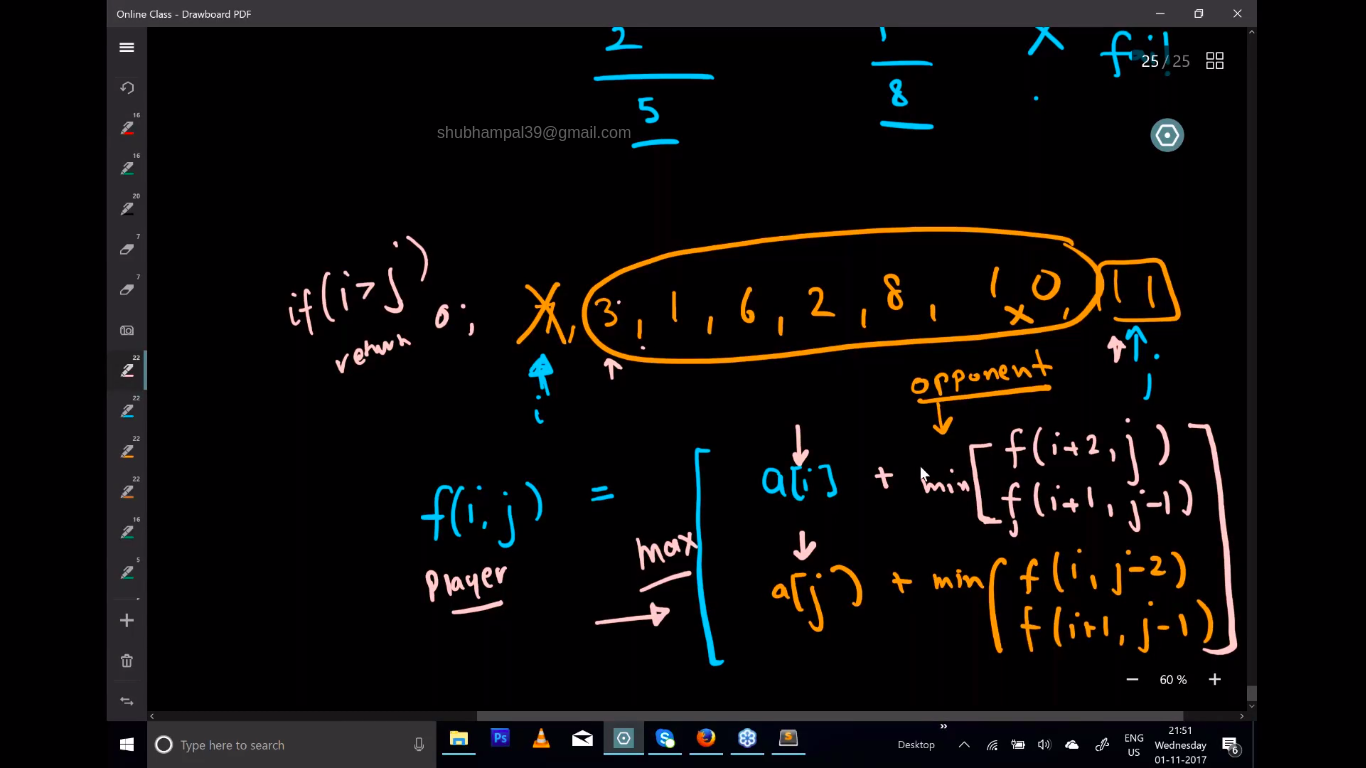 Online Class - Drawboard PDF
2
1
X
fil
25 / 25
5
8
shubhampal39@gmail.com
if(i>j)
return 0;
3, 1, 6, 2, 8, 10, 11
i
j
opponent
f(i,j) = max [ a[i] + min [ f(i+2, j)
f(i+1, j-1) ]
Player
a[j] + min ( f(i, j-2)
f(i+1, j-1) ) ]
60 %
16
16
20
7
7
22
22
22
22
16
5
Type here to search
Ps
S
Desktop
ENG
US
21:51
Wednesday
01-11-2017
6